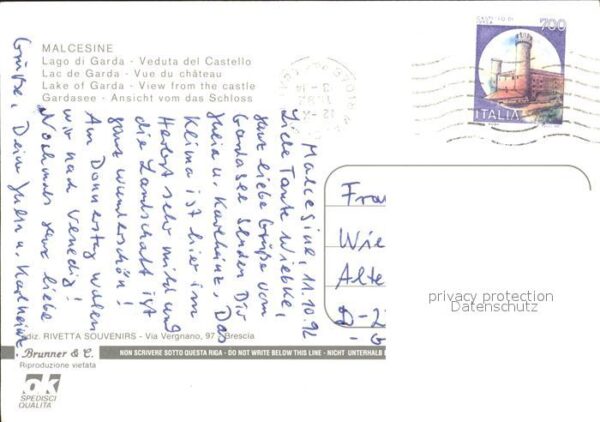 MALCESINE
Lago di Garda - Veduta del Castello
Lac de Garda - Vue du château
Lake of Garda - View from the castle
Gardasee - Ansicht vom das Schloss
CASTELLO DI
IVREA
700
ITALIA
Malcesine, 11.10.92
Liebe Tante Wiebke,
ganz liebe Grüße vom
Gardasee senden Dir
Julia u. Karlheinz. Das
Klima ist hier im
Herbst sehr mild und
die Landschaft ist
ganz wunderschön!
Am Donnerstag wollen
wir nach Venedig!
Nochmals ganz liebe
Grüße, Deine Julia u. Karlheinz.
Frau
Wie
Alte
D-2
privacy protection
Datenschutz
diz. RIVETTA SOUVENIRS - Via Vergnano, 97 - Brescia
Brunner & C.
Riproduzione vietata
NON SCRIVERE SOTTO QUESTA RIGA - DO NOT WRITE BELOW THIS LINE - NICHT UNTERHALB
ok
SPEDISCI
QUALITA